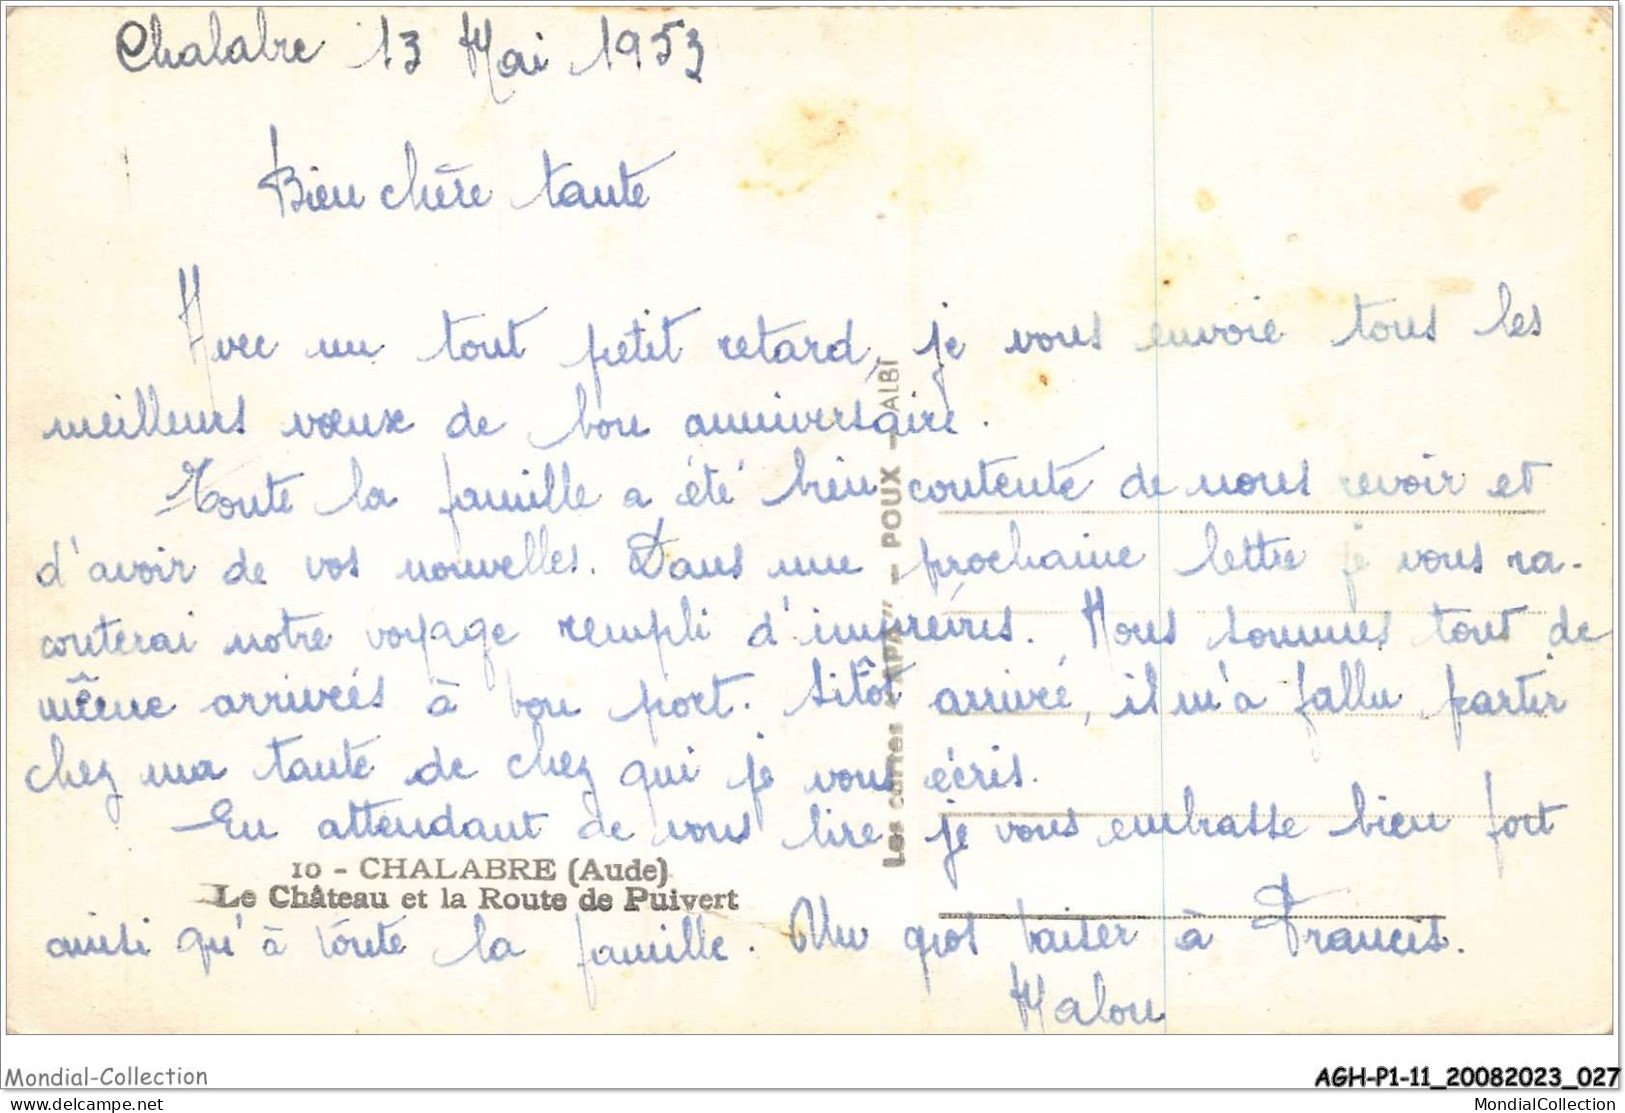 Chalabre 13 Mai 1953
Bien chère tante
Avec un tout petit retard, je vous envoie tous les
meilleurs vœux de bon anniversaire.
Toute la famille a été bien contente de nous revoir et
d'avoir de vos nouvelles. Dans une prochaine lettre je vous ra-
conterai notre voyage rempli d'imprévus. Nous sommes tout de
même arrivés à bon port. Sitôt arrivé, il m'a fallu partir
chez ma tante de chez qui je vous écris.
En attendant de vous lire je vous embrasse bien fort
10 - CHALABRE (Aude)
Le Château et la Route de Puivert
ainsi qu'à toute la famille. Un gros baiser à Francis.
Malou
Les cartes "APA" - POUX - ALBI
Mondial-Collection
AGH-P1-11_20082023_027
www.delcampe.net
MondialCollection